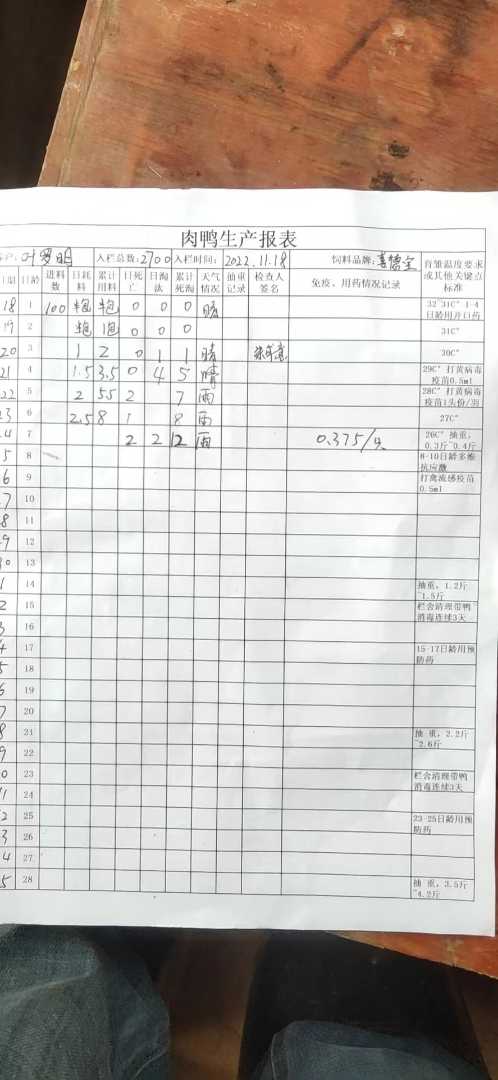 肉鸭生产报表
叶罗明 入栏总数:2700 入栏时间: 2022.11.18 饲料品牌: 育雏温度要求或其他关键点标准
日期 日龄 进料数 日耗料 累计用料 日死亡 日淘汰 累计死淘 天气情况 抽重记录 检查人签名 免疫、用药情况记录
18 1 100 半包 半包 0 0 0 晴 32~31C° 1-4日龄用开口药
19 2 半包 1包 0 0 0 31C°
20 3 1 2 0 1 1 晴 30C°
21 4 1.5 3.5 0 4 5 晴 29C° 打黄病毒疫苗0.5ml
22 5 2 5.5 2 7 雨 28C° 打黄病毒疫苗1头份/羽
23 6 2.5 8 1 8 雨 27C°
4 7 2 2 12 雨 0.375/只 26C° 抽重,0.3斤~0.4斤
5 8 8-10日龄多维抗应激
6 9 打禽流感疫苗0.5ml
7 10
8 11
9 12
30 13
1 14 抽重,1.2斤~1.5斤
2 15 栏舍清理带鸭消毒连续3天
3 16
4 17 15-17日龄用预防药
5 18
6 19
7 20
8 21 抽重,2.2斤~2.6斤
9 22
0 23 栏舍清理带鸭消毒连续3天
1 24
2 25 23-25日龄用预防药
3 26
4 27
5 28 抽重,3.5斤~4.2斤